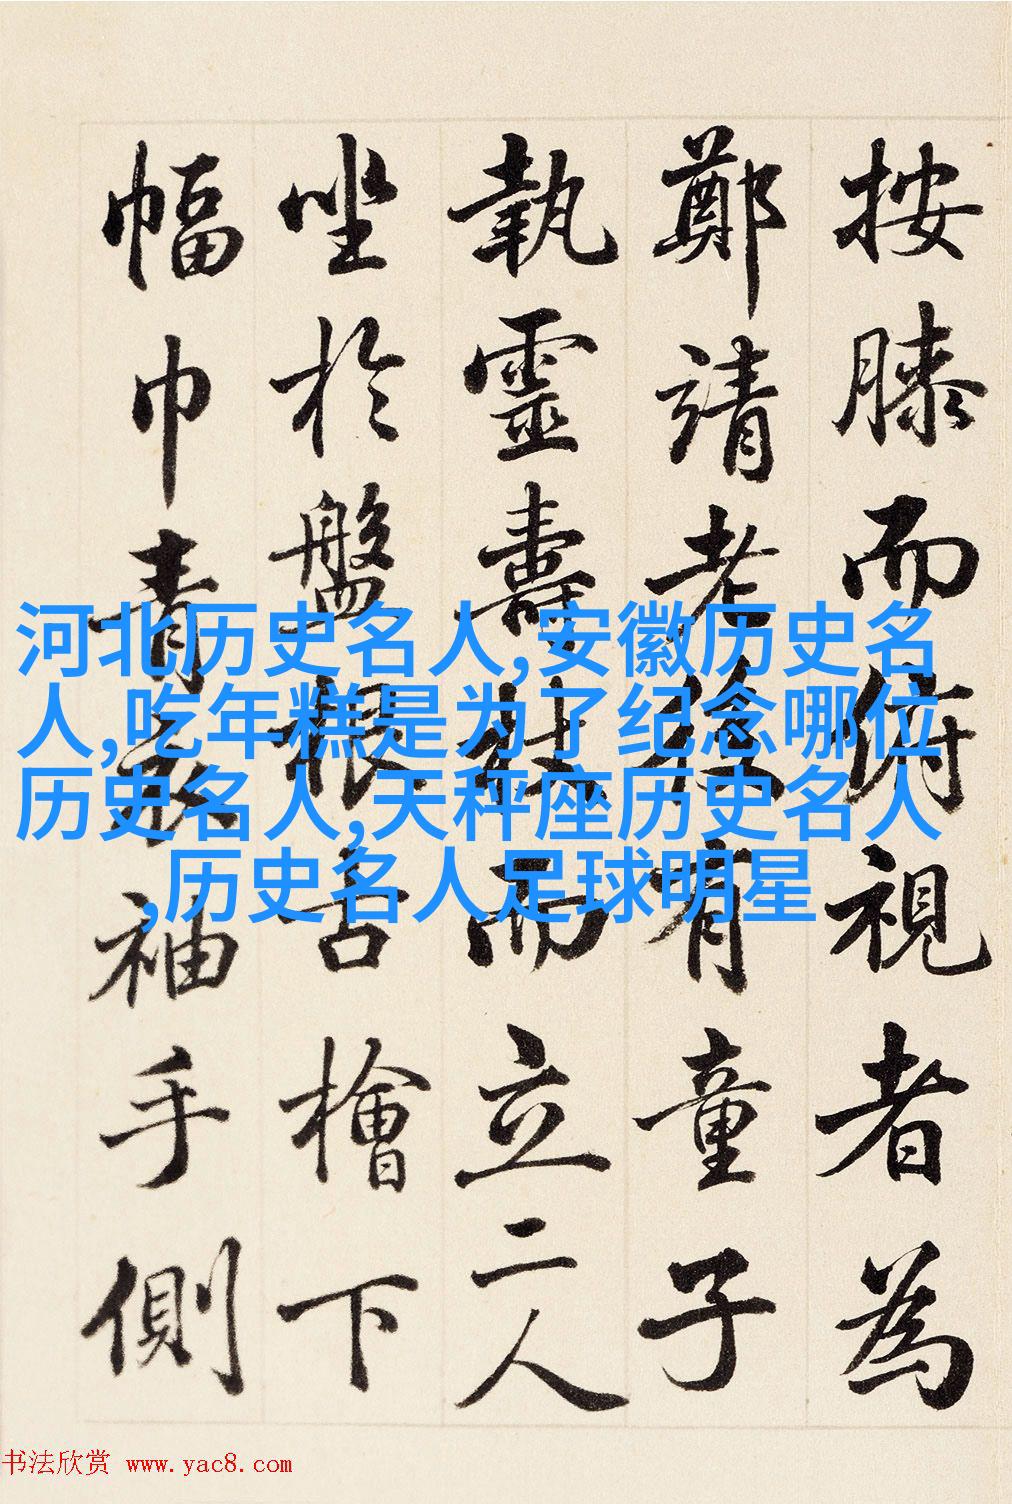 按膝而俯視者為
鄭靖老後有童子
執靈壽杖而立二人
坐於盤根古檜下
幅巾青衣袖手側
河北历史名人,安徽历史名
人,吃年糕是为了纪念哪位
历史名人,天秤座历史名人
,历史名人足球明星
书法欣赏 www.yac8.com